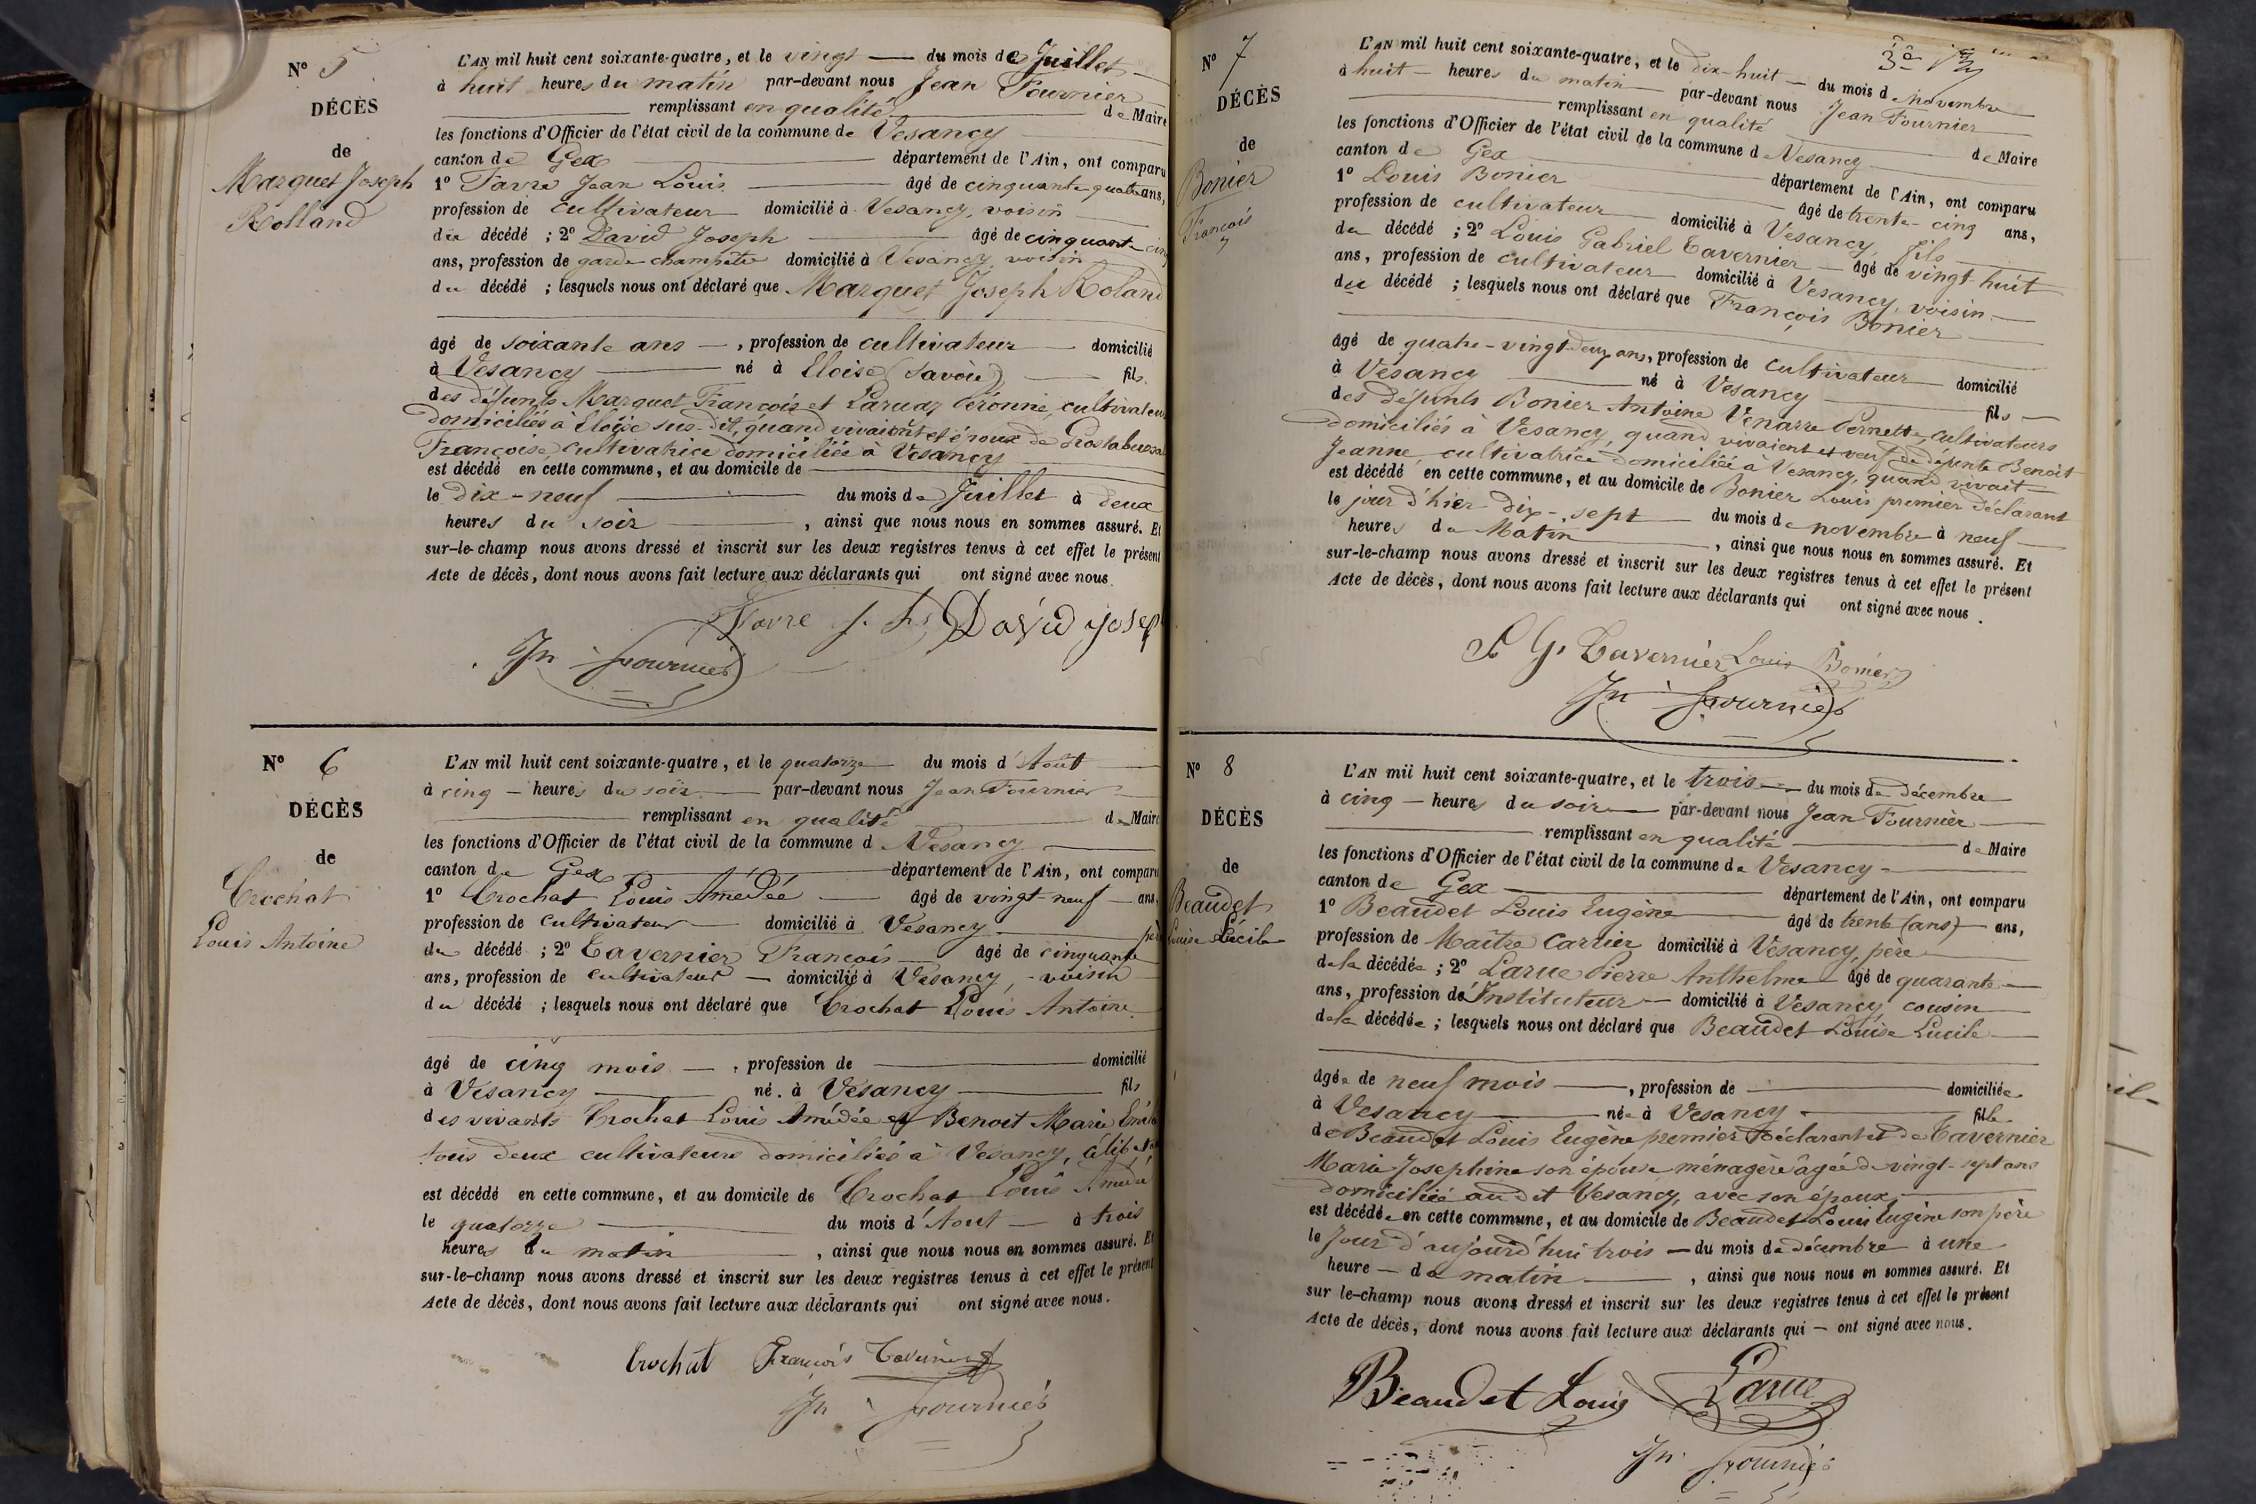 Nº 5
DÉCÈS
de
Marquet Joseph
Rolland
L'AN mil huit cent soixante-quatre, et le vingt du mois de Juillet
à huit heures du matin par-devant nous Jean Fournier
remplissant en qualité de Maire
les fonctions d'Officier de l'état civil de la commune de Vesancy
canton de Gex département de l'Ain, ont comparu
1º Favre Jean Louis âgé de cinquante quatre ans,
profession de cultivateur domicilié à Vesancy, voisin
du décédé ; 2º David Joseph âgé de cinquante cinq
ans, profession de garde champêtre domicilié à Vesancy voisin
du décédé ; lesquels nous ont déclaré que Marquet Joseph Roland
âgé de soixante ans, profession de cultivateur domicilié
à Vesancy né à Eloise (Savoie) fils
des défunts Marquet François et Laruaz Péronne, cultivateurs
domiciliés à Eloïse sus-dit, quand vivaient et époux de
Françoise cultivatrice domiciliée à Vesancy
est décédé en cette commune, et au domicile de
le dix-neuf du mois de Juillet à deux
heures du soir, ainsi que nous nous en sommes assuré. Et
sur-le-champ nous avons dressé et inscrit sur les deux registres tenus à cet effet le présent
Acte de décès, dont nous avons fait lecture aux déclarants qui ont signé avec nous.
Favre J. Ls David Joseph
Jn Fournier
Nº 6
DÉCÈS
de
Crochat
Louis Antoine
L'AN mil huit cent soixante-quatre, et le quatorze du mois d'Août
à cinq heures du soir par-devant nous Jean Fournier
remplissant en qualité de Maire
les fonctions d'Officier de l'état civil de la commune d Vesancy
canton de Gex département de l'Ain, ont comparu
1º Crochat Louis Amédée âgé de vingt-neuf ans,
profession de cultivateur domicilié à Vesancy père
du décédé ; 2º Tavernier François âgé de cinquante
ans, profession de cultivateur domicilié à Vesancy, voisin
du décédé ; lesquels nous ont déclaré que Crochat Louis Antoine
âgé de cinq mois, profession de domicilié
à Vesancy né à Vesancy fils
des vivants Crochat Louis Amédée et Benoit Marie
tous deux cultivateurs domiciliés à Vesancy,
est décédé en cette commune, et au domicile de Crochat Louis Amédée
le quatorze du mois d'Aout à trois
heures du matin, ainsi que nous nous en sommes assuré. Et
sur-le-champ nous avons dressé et inscrit sur les deux registres tenus à cet effet le présent
Acte de décès, dont nous avons fait lecture aux déclarants qui ont signé avec nous.
Crochat François Tavernier
Jn Fournier
Nº 7
DÉCÈS
de
Bonier
François
L'AN mil huit cent soixante-quatre, et le dix-huit du mois de Novembre
à huit heures du matin par-devant nous Jean Fournier
remplissant en qualité de Maire
les fonctions d'Officier de l'état civil de la commune d Vesancy
canton de Gex département de l'Ain, ont comparu
1º Louis Bonier âgé de trente-cinq ans,
profession de cultivateur domicilié à Vesancy, fils
du décédé ; 2º Louis Gabriel Tavernier âgé de vingt-huit
ans, profession de cultivateur domicilié à Vesancy, voisin
du décédé ; lesquels nous ont déclaré que François Bonier
âgé de quatre-vingt-deux ans, profession de cultivateur domicilié
à Vesancy né à Vesancy fils
des défunts Bonier Antoine Venarre Pernette, cultivateurs
domiciliés à Vesancy, quand vivaient et veuf de défunte Benoit
Jeanne, cultivatrice domiciliée à Vesancy, quand vivait
est décédé en cette commune, et au domicile de Bonier Louis premier déclarant
le jour d'hier dix-sept du mois de novembre à neuf
heures du Matin, ainsi que nous nous en sommes assuré. Et
sur-le-champ nous avons dressé et inscrit sur les deux registres tenus à cet effet le présent
Acte de décès, dont nous avons fait lecture aux déclarants qui ont signé avec nous.
L G. Tavernier Louis Bonier
Jn Fournier
Nº 8
DÉCÈS
de
Beaudet
Louise Lucile
L'AN mil huit cent soixante-quatre, et le trois du mois de décembre
à cinq heures du soir par-devant nous Jean Fournier
remplissant en qualité de Maire
les fonctions d'Officier de l'état civil de la commune de Vesancy
canton de Gex département de l'Ain, ont comparu
1º Beaudet Louis Eugène âgé de trente (ans) ans,
profession de Maître Carrier domicilié à Vesancy, père
de la décédée ; 2º Larue Pierre Anthelme âgé de quarante
ans, profession d'Instituteur domicilié à Vesancy cousin
de la décédée ; lesquels nous ont déclaré que Beaudet Louise Lucile
âgée de neuf mois, profession de domiciliée
à Vesancy née à Vesancy fille
de Beaudet Louis Eugène premier déclarant et de Tavernier
Marie Josephine son épouse ménagère âgée de vingt-sept ans
domiciliée au dit Vesancy, avec son époux,
est décédée en cette commune, et au domicile de Beaudet Louis Eugène son père
le Jour d'aujourd'hui trois du mois de décembre à une
heure du matin, ainsi que nous nous en sommes assuré. Et
sur le-champ nous avons dressé et inscrit sur les deux registres tenus à cet effet le présent
Acte de décès, dont nous avons fait lecture aux déclarants qui ont signé avec nous.
Beaudet Louis Larue
Jn Fournier